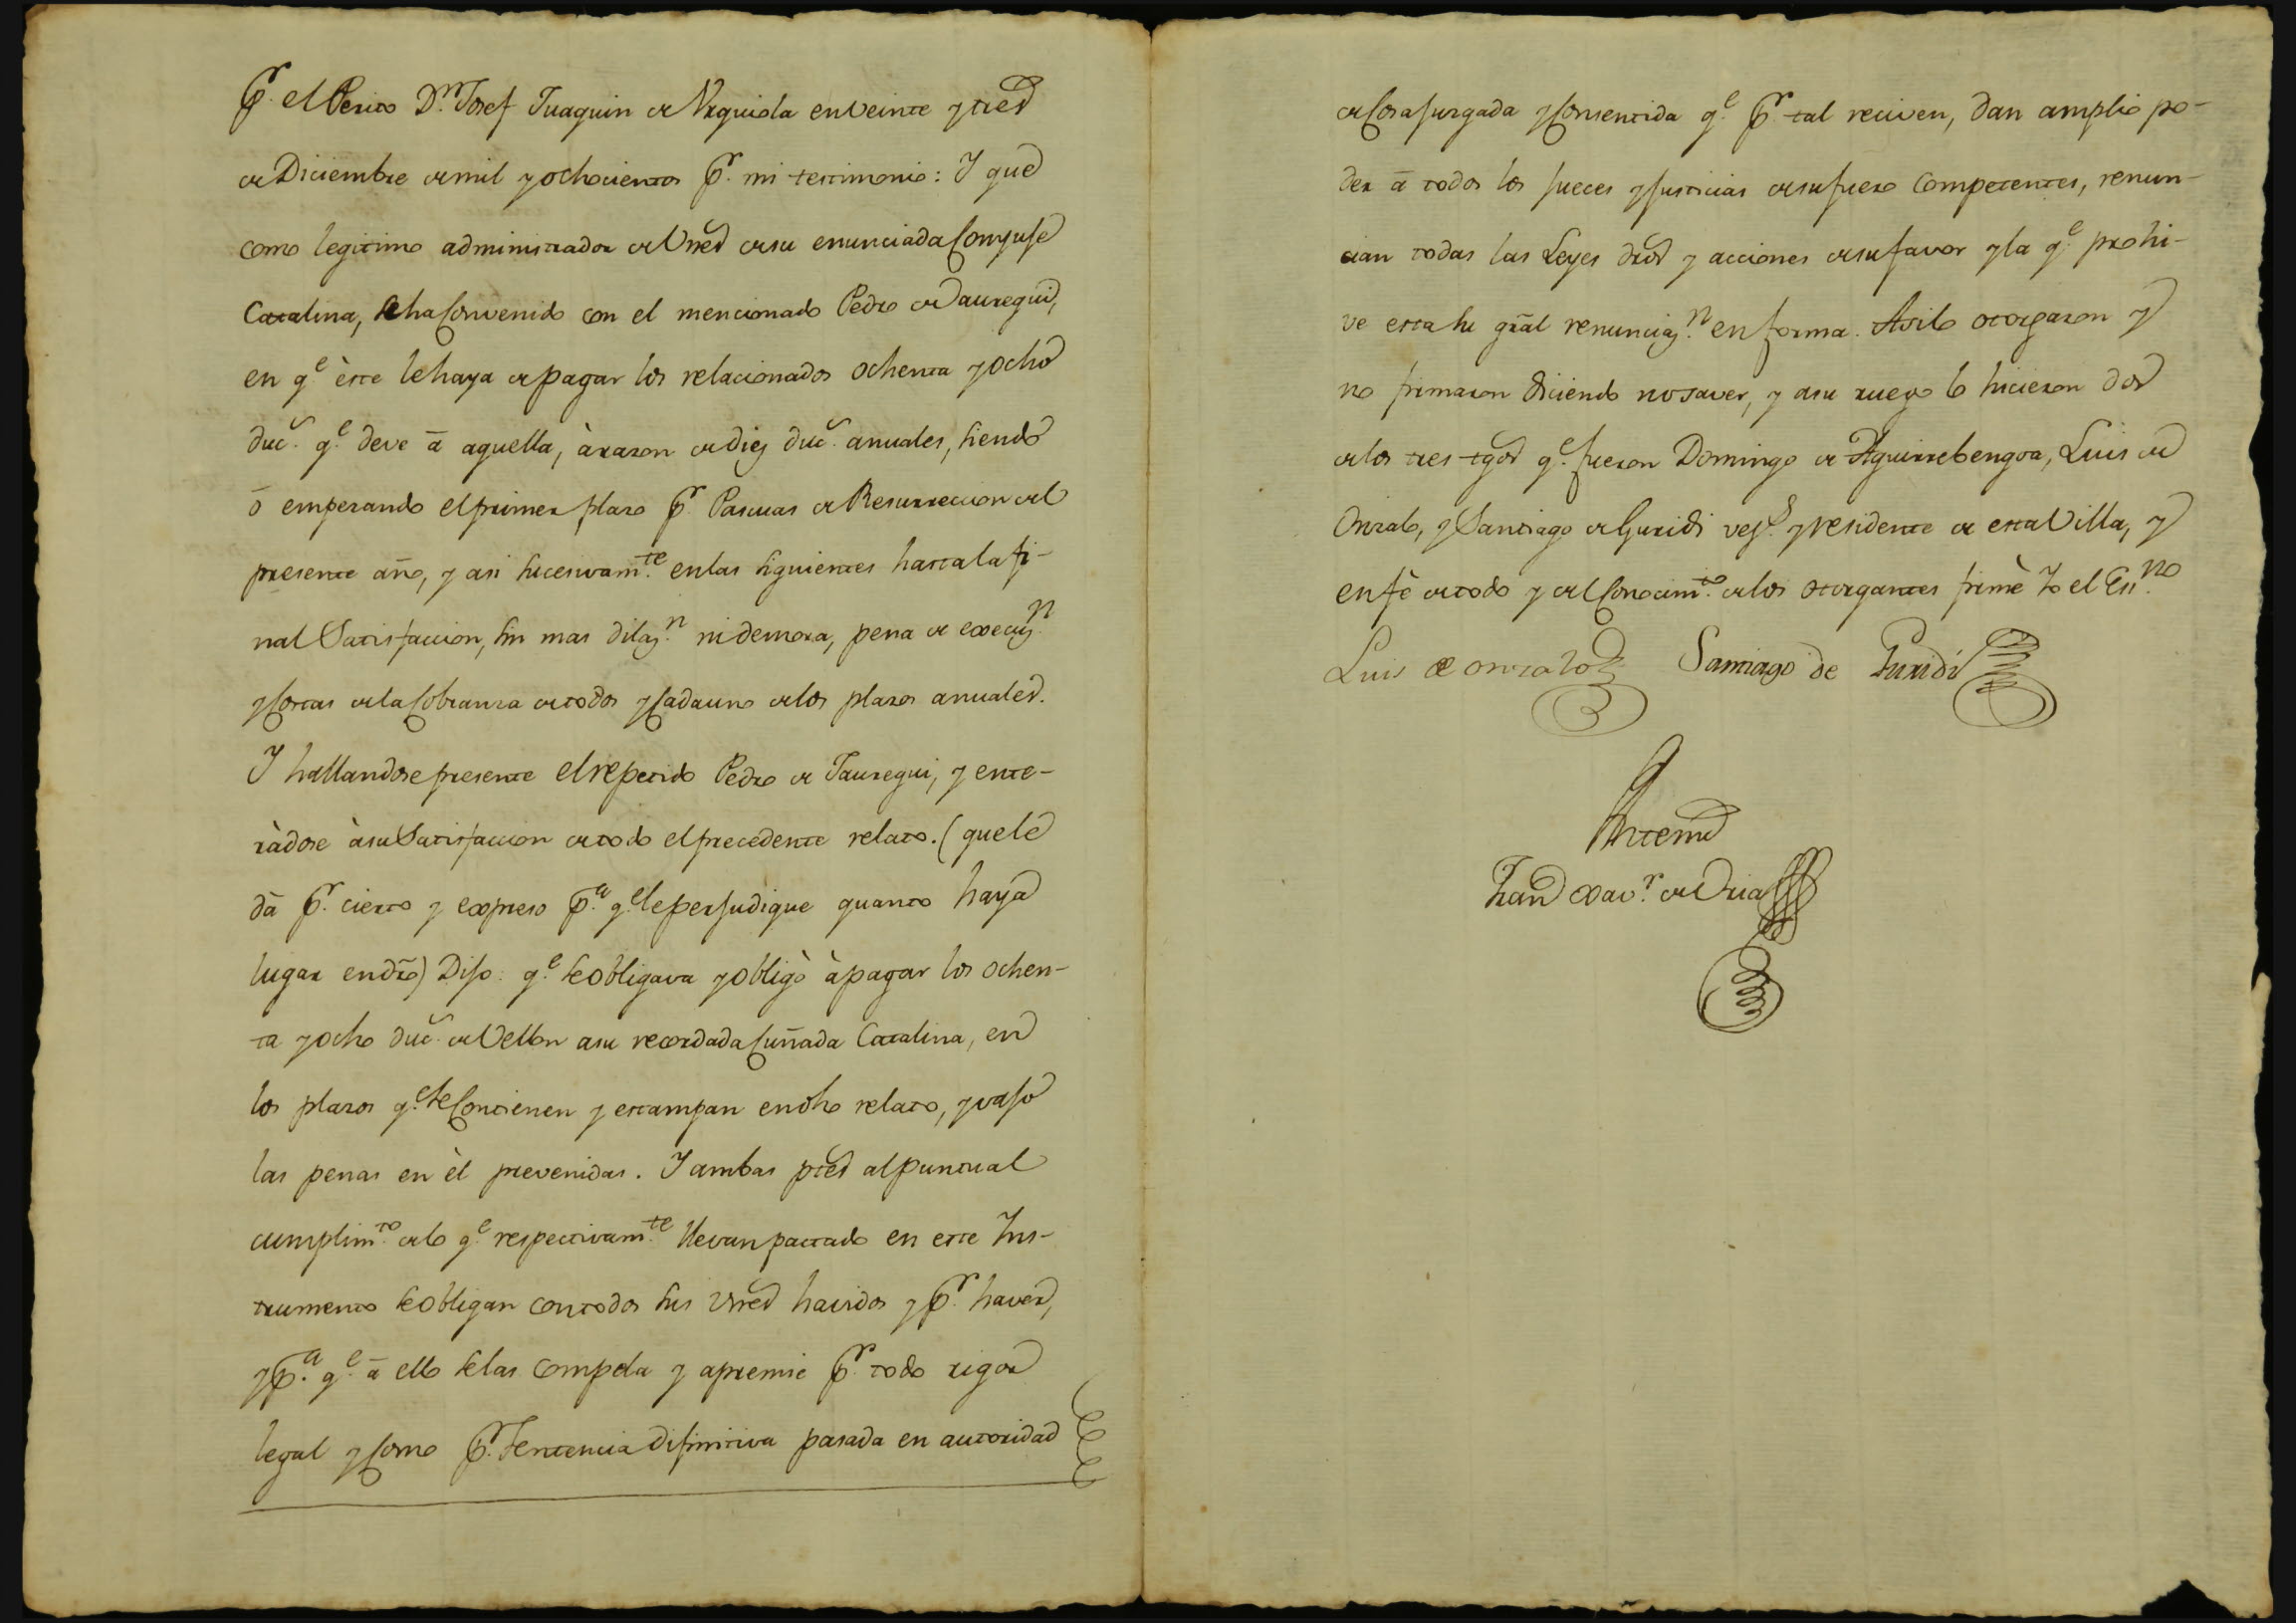 pr. el Perito Dn. Josef Juaquin de Vrquiola en veinte y tres
de Diciembre de mil y ochocientos pr. mi testimonio: Y que
como legitimo administrador de Vnes de su enunciada Conjuge
Catalina, se ha Convenido con el mencionado Pedro de Jauregui,
en qe. èste le haya de pagar los relacionados ochenta y ocho
duc.s qe. deve à aquella, à razon de diez duc.s anuales, siendo
ò empezando el primer plazo pr. Pascuas de Resurreccion del
presente año, y asi sucesivamte. en las siguientes hasta la fi-
nal Satisfaccion, sin mas dilazn. ni demora, pena de execuzn.
y Costas de la Cobranza de todos y Cada uno de los plazos anuales.
Y hallandose presente el repetido Pedro de Jauregui, y ente-
ràdose à su Satisfaccion de todo el precedente relato. (que le
dà pr. cierto y expreso pa. qe. le perjudique quanto haya
lugar en dro) Dijo: qe. se obligava y obligò à pagar los ochen-
ta y ocho duc.s de Vellon a su recordada Cuñada Catalina, en
los plazos qe. se Contienen y estampan en dho relato, y vajo
las penas en èl prevenidas. Y ambas ptes al puntual
cumplimto. de lo qe. respectivamte. llevan pactado en este Ins-
trumento se obligan con todos sus Vnes havidos y pr. haver,
y pa. qe. à ello se las compela y apremie pr. todo rigor
legal y Como pr. Sentencia difinitiva pasada en autoridad
de Cosa juzgada y Consentida qe. pr. tal reciven, dan amplio po-
der à todos los jueces y justicias de su fuero Competentes, renun-
cian todas las Leyes dros y acciones de su favor y la qe. prohi-
ve esta su gral renunciazn. en forma. Asi lo otorgaron y
no firmaron diciendo no saver, y a su ruego lo hicieron dos
de los tres tgos qe. fueron Domingo de Aguirrebengoa, Luis de
Onzalo, y Santiago de Guridi vezs. y residente de esta Villa, y
en fè de todo y del Conocimto. de los otorgantes firmè Yo el Esno.
Luis de onzalo Santiago de Guridi
Antemi
Franco xavr. de Vria